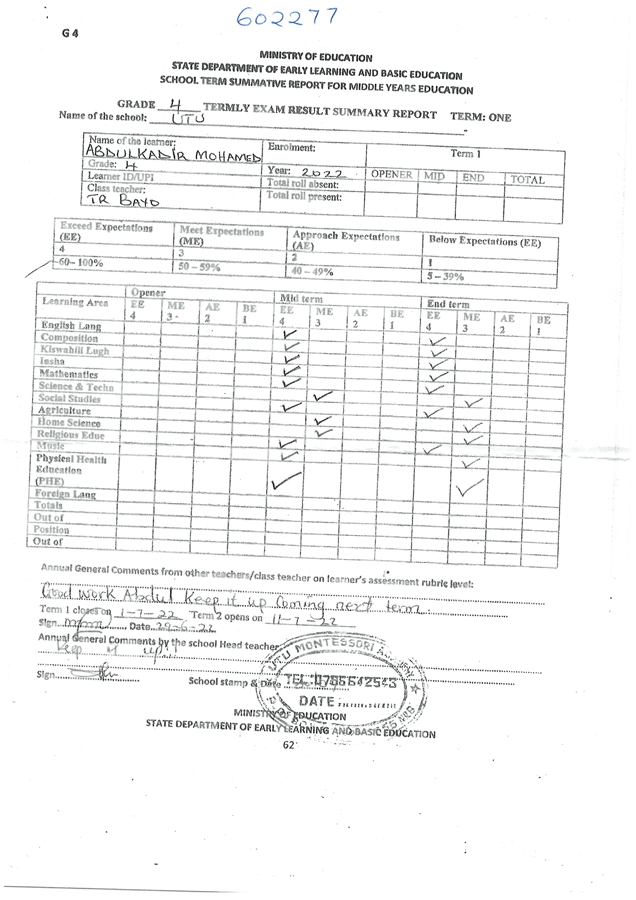 602277
G 4
MINISTRY OF EDUCATION
STATE DEPARTMENT OF EARLY LEARNING AND BASIC EDUCATION
SCHOOL TERM SUMMATIVE REPORT FOR MIDDLE YEARS EDUCATION
GRADE 4 TERMLY EXAM RESULT SUMMARY REPORT TERM: ONE
Name of the school: UTU
Name of the learner: Enrolment: Term 1
ABDULKADIR MOHAMED
Grade: 4 Year: 2022 OPENER MID END TOTAL
Learner ID/UPI Total roll absent:
Class teacher: Total roll present:
TR BAYO
Exceed Expectations (EE) Meet Expectations (ME) Approach Expectations (AE) Below Expectations (EE)
4 3 2 1
60–100% 50 – 59% 40 – 49% 5 – 39%
Learning Area Opener Mid term End term
EE ME AE BE EE ME AE BE EE ME AE BE
4 3 2 1 4 3 2 1 4 3 2 1
English Lang
Composition ✓ ✓
Kiswahili Lugh ✓ ✓
Insha ✓ ✓
Mathematics ✓ ✓
Science & Techn ✓ ✓
Social Studies ✓ ✓
Agriculture ✓ ✓
Home Science ✓ ✓
Religious Educ ✓ ✓
Music ✓ ✓
Physical Health ✓ ✓
Education
(PHE) ✓ ✓
Foreign Lang
Totals
Out of
Position
Out of
Annual General Comments from other teachers/class teacher on learner's assessment rubric level:
Good work Abdul Keep it up Coming next term.
Term 1 closes on 1-7-22 Term 2 opens on 11-7-22
Sign. Date 29-6-22
Annual General Comments by the school Head teacher:
Keep it up!
Sign School stamp & Date
UTU MONTESSORI
TEL: 0755542543
DATE
MINISTRY OF EDUCATION
STATE DEPARTMENT OF EARLY LEARNING AND BASIC EDUCATION
62